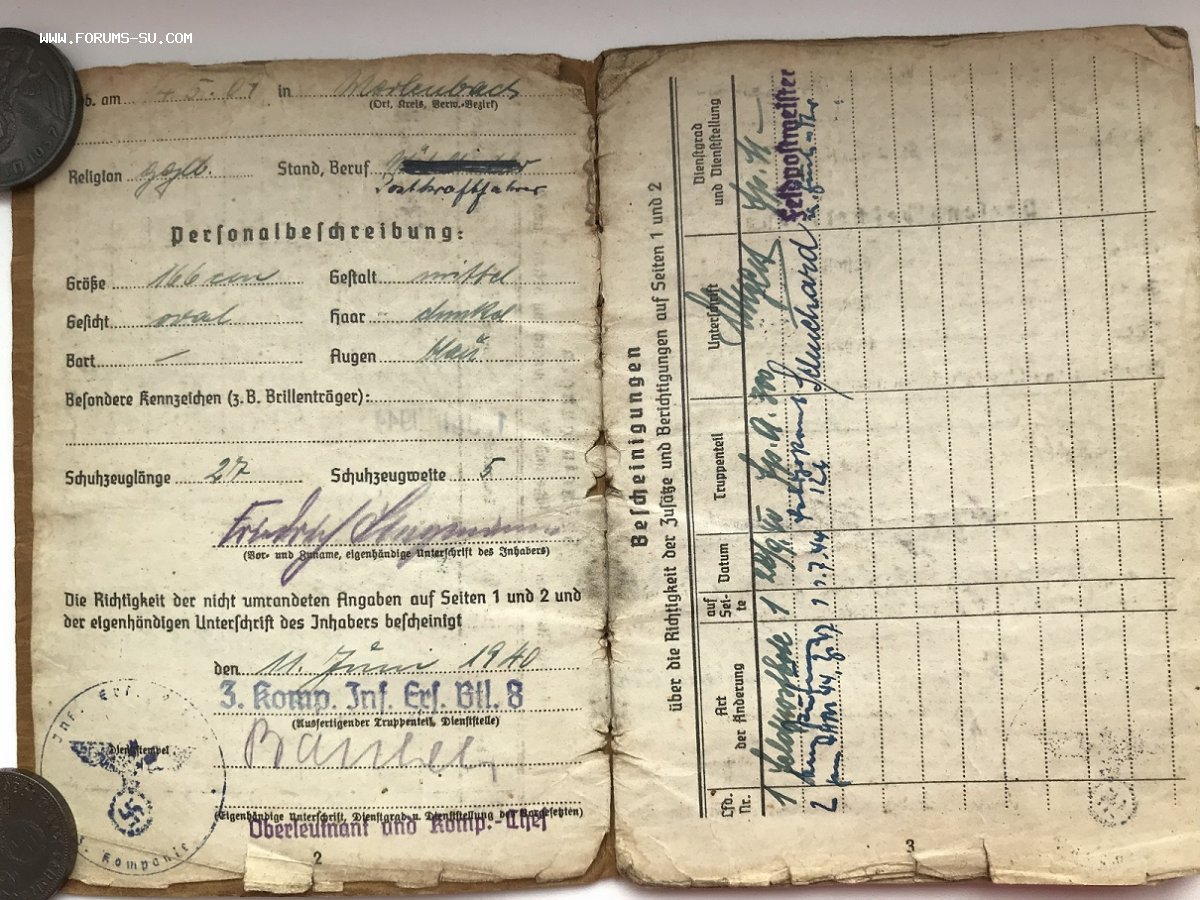 WWW.FORUMS-SU.COM
b. am 5. 01 in
(Ort, Kreis, Verw.-Bezirk)
Religion ggl. Stand, Beruf
Postkraftfahrer
Personalbeschreibung:
Größe 166 cm Gestalt mittel
Gesicht oval Haar dunkel
Bart — Augen blau
Besondere Kennzeichen (z. B. Brillenträger):
Schuhzeuglänge 27 Schuhzeugweite 5
Friedrich
(Vor- und Zuname, eigenhändige Unterschrift des Inhabers)
Die Richtigkeit der nicht umrandeten Angaben auf Seiten 1 und 2 und
der eigenhändigen Unterschrift des Inhabers bescheinigt
den 11. Juni 1940
3. Komp. Inf. Ers. Btl. 8
(Ausfertigender Truppenteil, Dienststelle)
Dienststempel
(Eigenhändige Unterschrift, Dienstgrad u. Dienststellung des Vorgesetzten)
Oberleutnant und Komp.-Chef
Inf. Ers.
Kompanie
2
Bescheinigungen
über die Richtigkeit der Zusätze und Berichtigungen auf Seiten 1 und 2
Lfd. Nr.
Art der Änderung
auf Seite
Datum
Truppenteil
Unterschrift
Dienstgrad und Dienststellung
1 1
Feldpostmeister
2 1 1.7.44 Feldpostamt Schuchhard
3